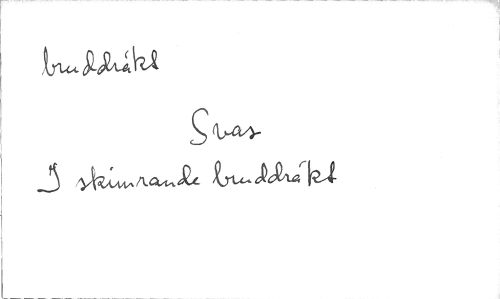 bruddräkt
Svas
I skimrande bruddräkt